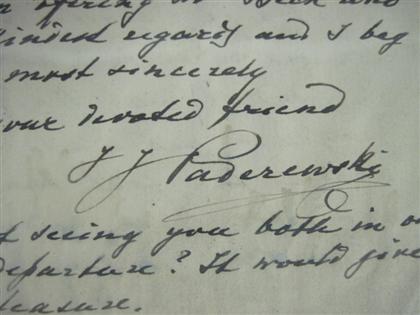 kindest regards and I beg
most sincerely
your devoted friend
I J Paderewski
seeing you both in
departure? It would give
pleasure.